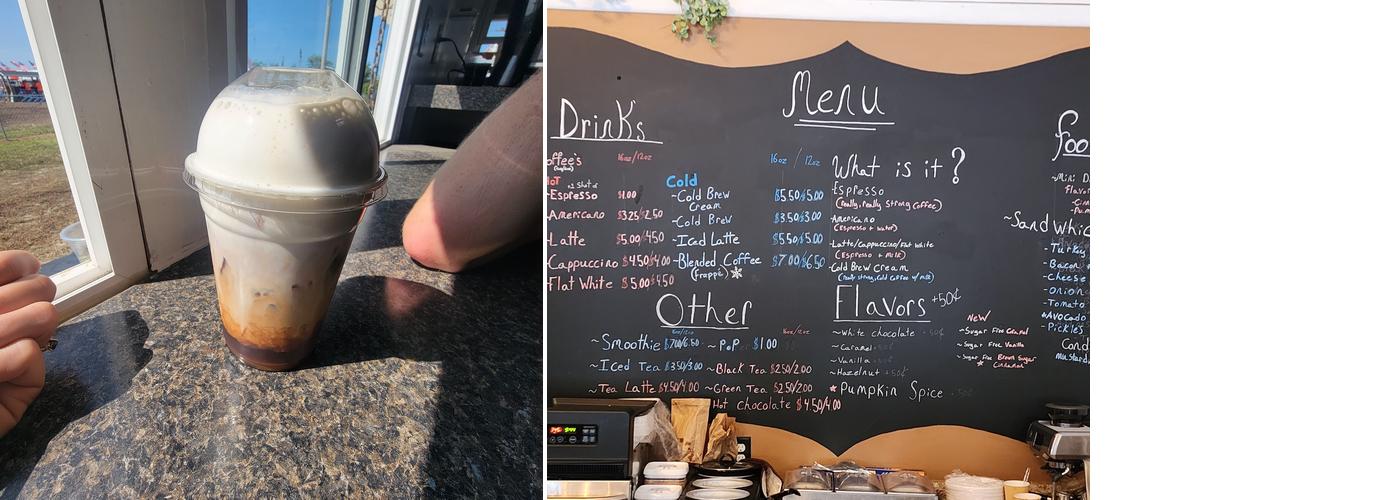 Menu
Drinks
offee's
16oz/12oz
HOT
+2 Shot of
-Espresso $1.00
-Americano $3.25/$2.50
-Latte $5.00/4.50
-Cappuccino $4.50/$4.00
-Flat White $5.00/$4.50
16oz / 12oz
Cold
~Cold Brew Cream $5.50/$5.00
~Cold Brew $3.50/$3.00
~Iced Latte $5.50/$5.00
~Blended Coffee $7.00/$6.50
(frappé) *
What is it?
-Espresso
(really, really strong coffee)
-Americano
(Espresso + water)
-Latte/Cappuccino/Flat White
(Espresso + Milk)
-Cold Brew Cream
(really strong, cold coffee w/ milk)
Other
16oz/12oz
16oz/12oz
~Smoothie $7.00/6.50 ~POP $1.00
~Iced Tea $3.50/3.00 ~Black Tea $2.50/2.00
~Tea Latte $4.50/4.00 ~Green Tea $2.50/2.00
Hot Chocolate $4.50/4.00
Flavors +50¢
~White chocolate
~Caramel
~Vanilla
~Hazelnut
*Pumpkin Spice
NEW
~Sugar Free Caramel
~Sugar Free Vanilla
~Sugar Free Brown Sugar
Cinnamon
foo
~Mini D
Flavor
~Sandwhic
-Turkey
-Bacon
-cheese
-onion
-Tomato
*Avocado
-Pickles
Cond
Mustard